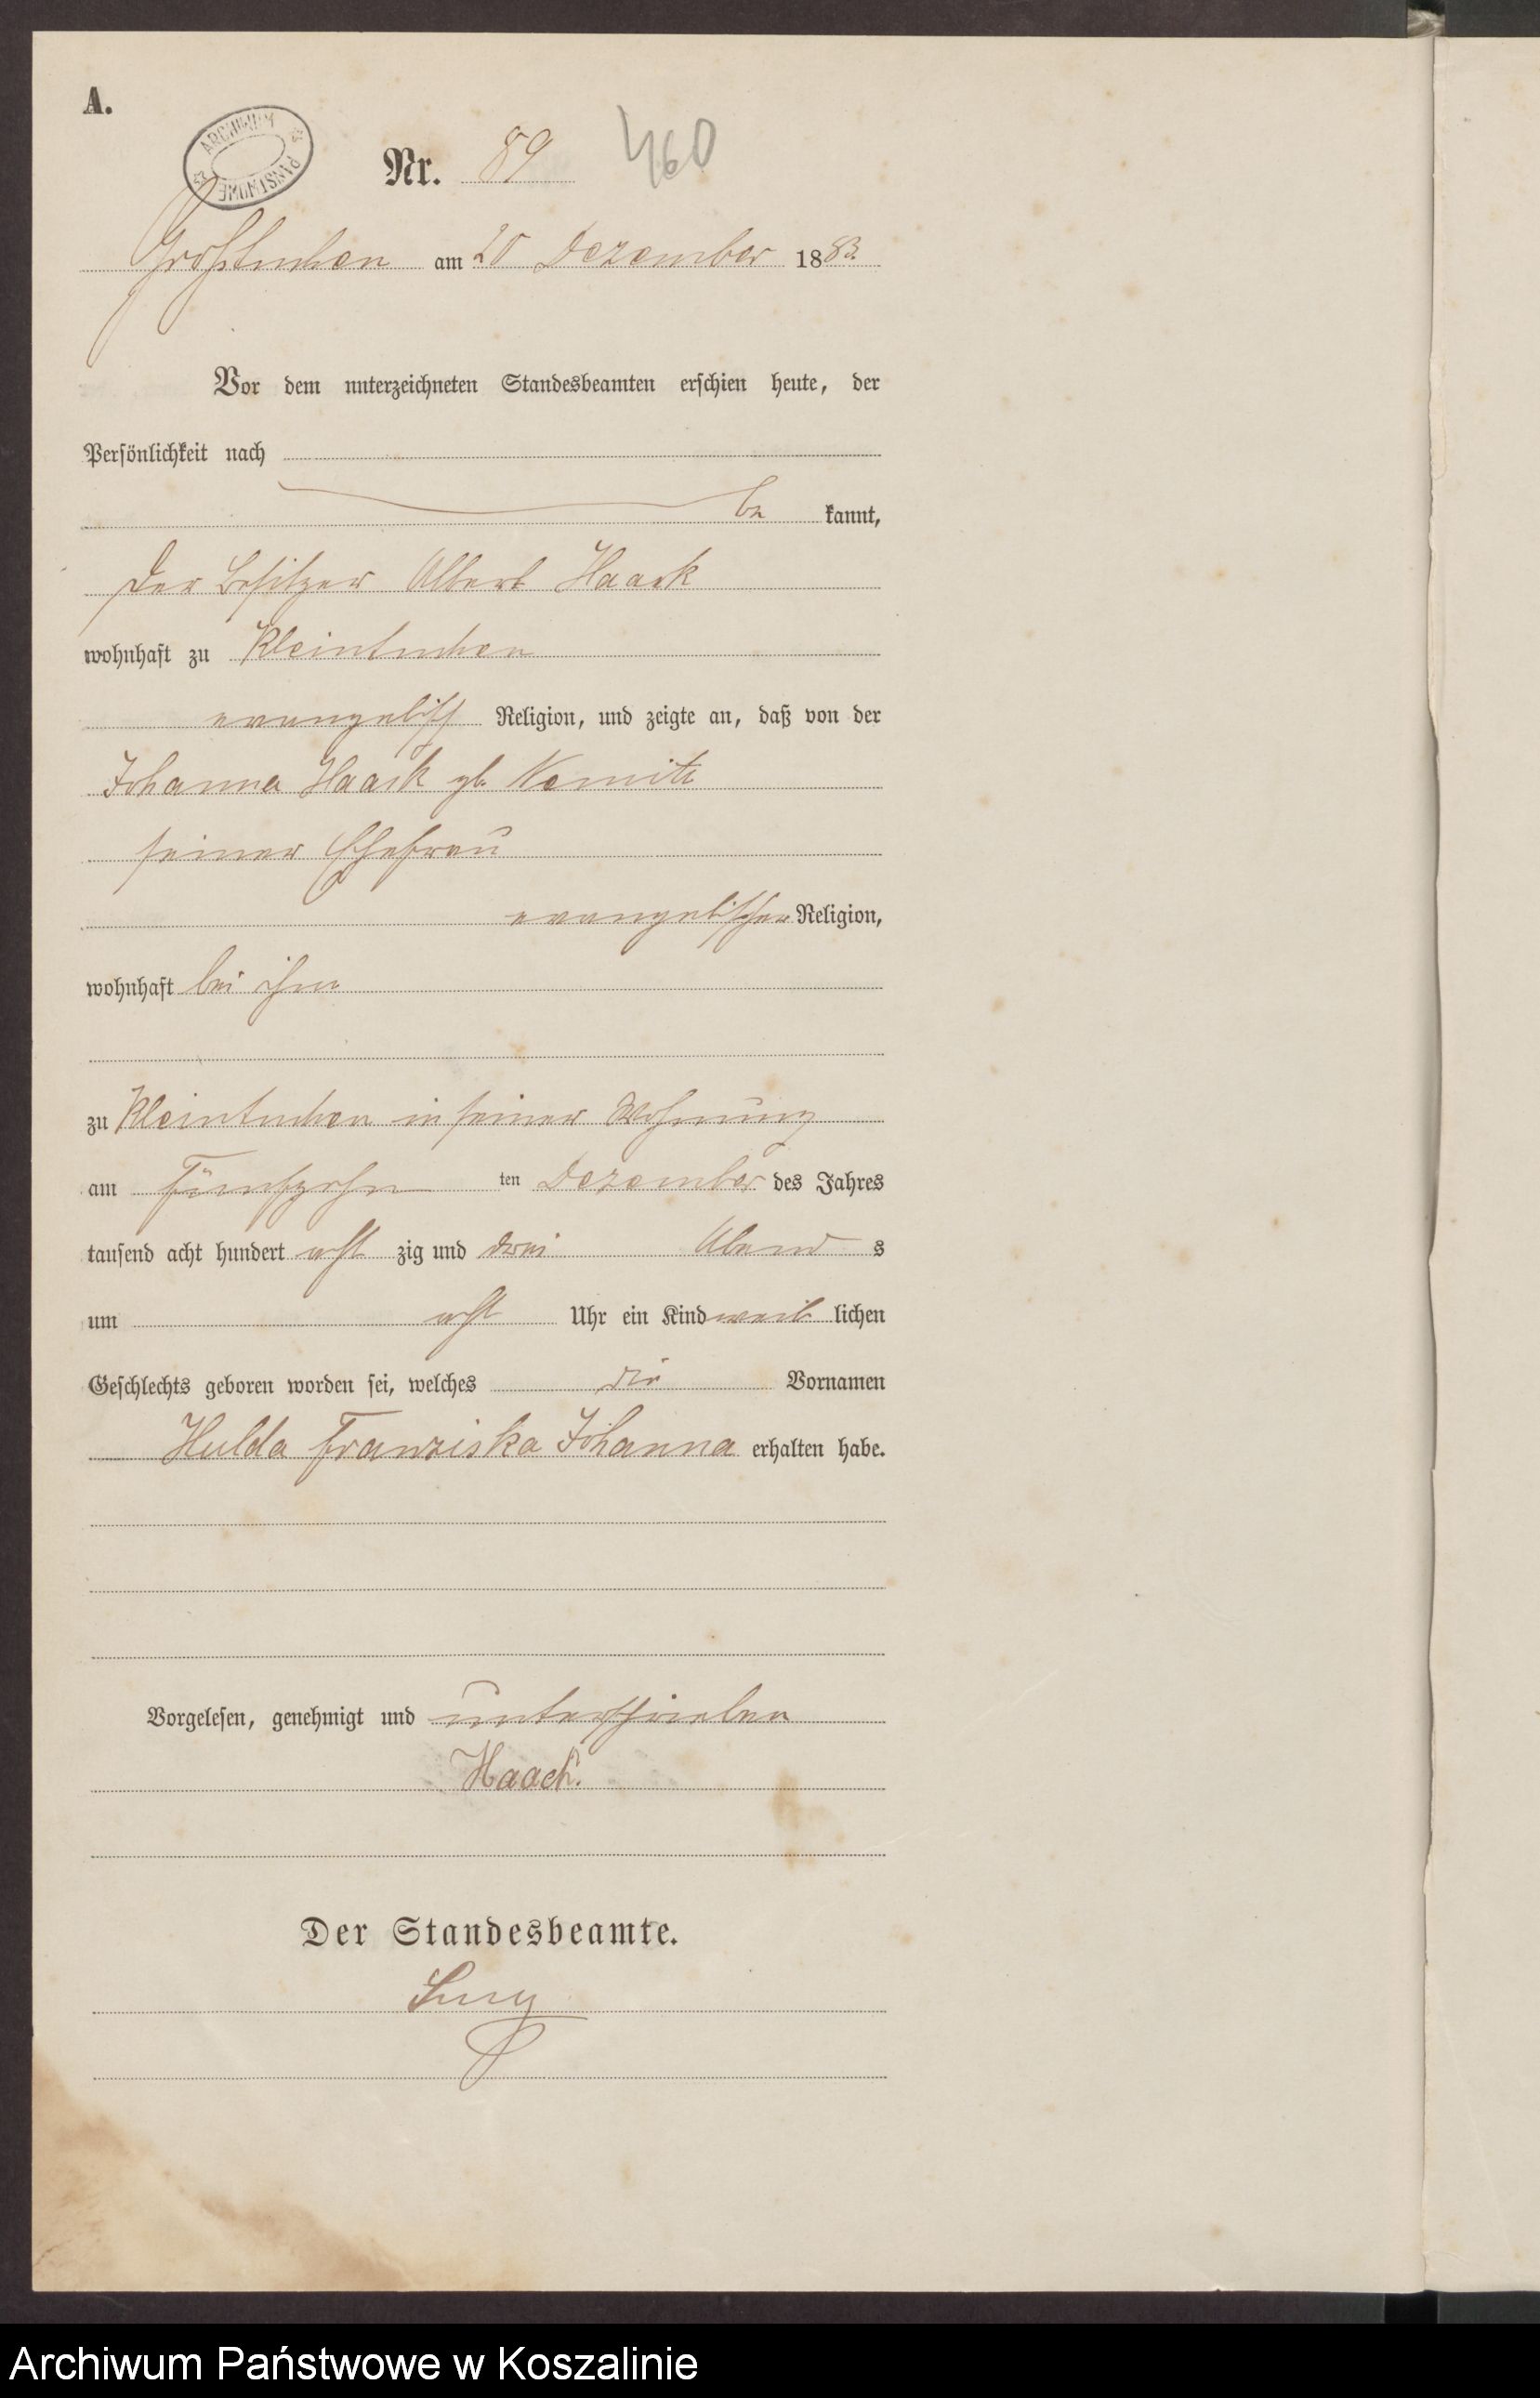 A.
ARCHIWUM PAŃSTWOWE
Nr. 89 460
Großtuchen am 20 Dezember 1883.
Vor dem unterzeichneten Standesbeamten erschien heute, der
Persönlichkeit nach
be kannt,
der Besitzer Albert Haack
wohnhaft zu Kleintuchen
evangelisch Religion, und zeigte an, daß von der
Johanna Haack gb. Nemitz
seiner Ehefrau
evangelischer Religion,
wohnhaft bei ihm
zu Kleintuchen in seiner Wohnung
am Fünfzehn ten Dezember des Jahres
tausend acht hundert acht zig und drei Abend s
um acht Uhr ein Kind weib lichen
Geschlechts geboren worden sei, welches die Vornamen
Hulda Franziska Johanna erhalten habe.
Vorgelesen, genehmigt und unterschrieben
Haack.
Der Standesbeamte.
Archiwum Państwowe w Koszalinie